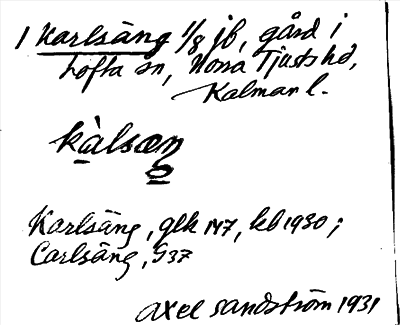 1 Karlsäng 1/8 jb, gård i
Lofta sn, Norra Tjusts hd,
Kalmar l.
kàlsæŋ
Karlsäng, glk 147, kb 1930;
Carlsäng, G37
Axel Sandström 1931